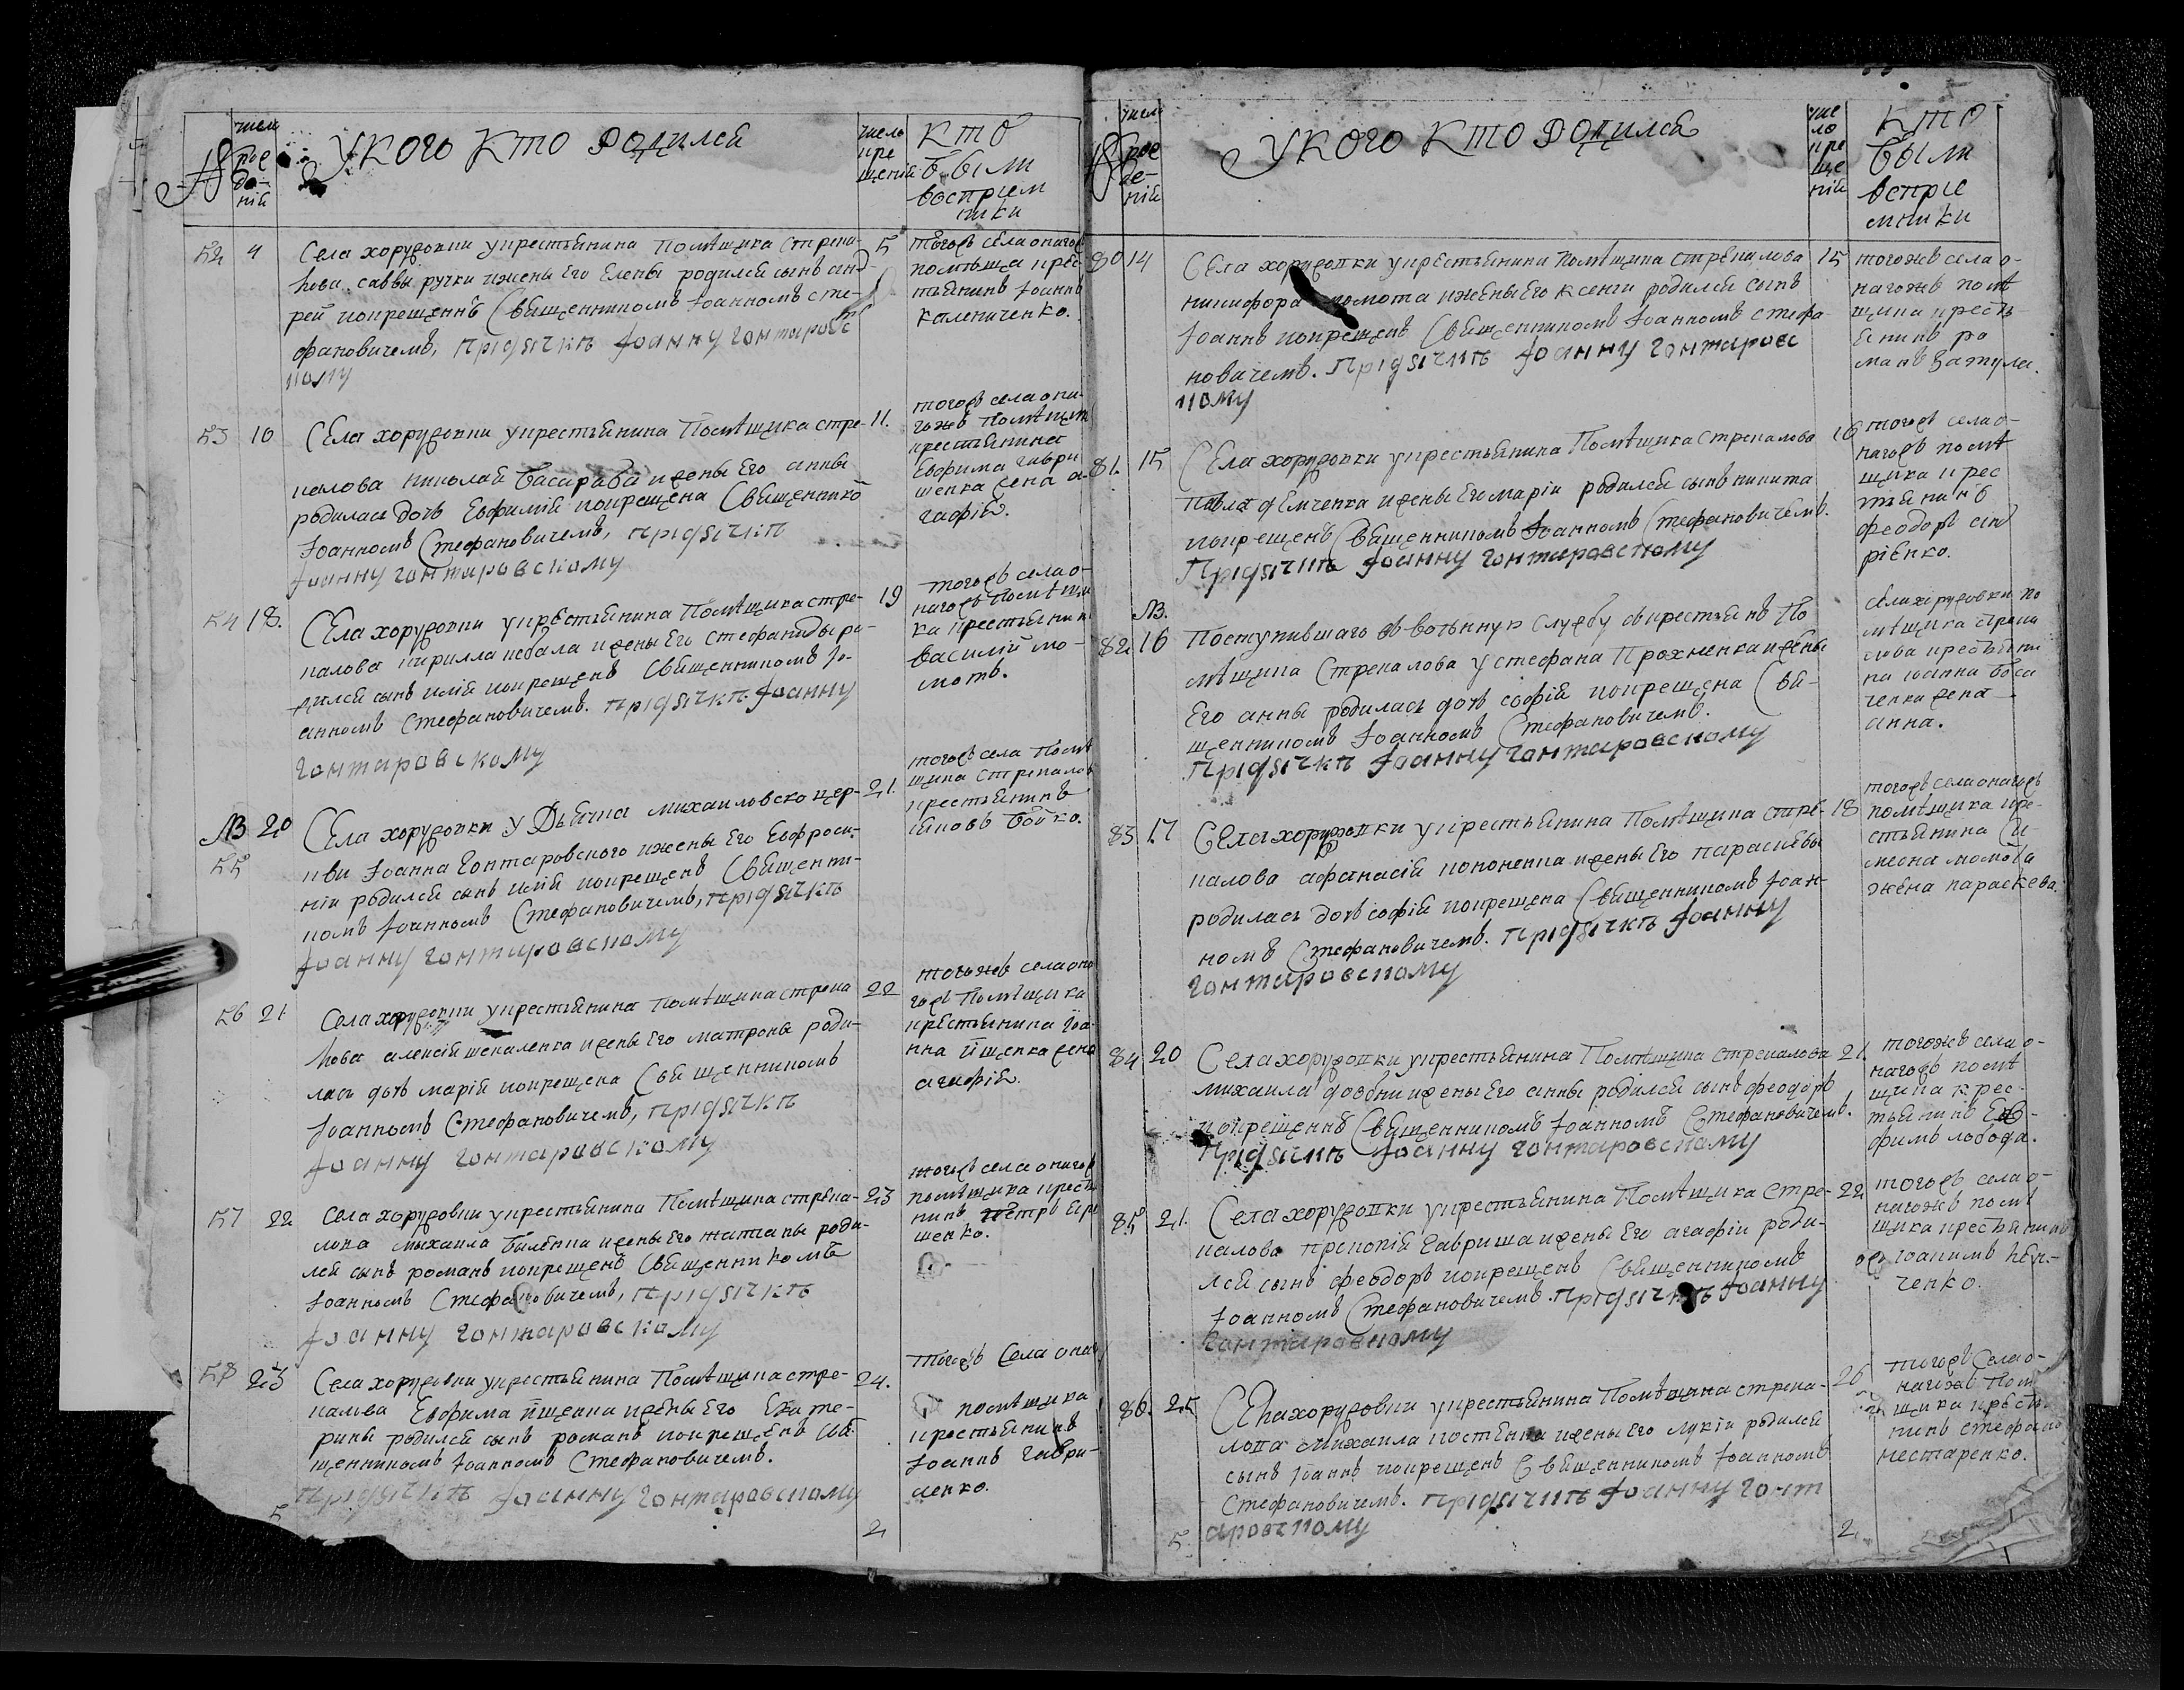 №
число
рое
де-
ній
У КОГО КТО РОДИЛСЯ
число
кре
щеній
КТО
Были
воспріем
ники
52 4
Села хоружовки укрестьянина помѣщика стрека-
лова саввы ручки ижены Его Елены родился сынъ анд-
рей икрещеннъ Священникомъ Іоанномъ сте-
фановичемъ, придячкѣ Іоанну гонтаровс
кому
5
тогожъ села онагожъ
помѣща крес-
тьянинъ Іоаннъ
калениченко.
53 10
Села хоружовки укрестьянина Помѣщика стре-
калова николай Басараба ижены Его анны
родилась дочь Евфимія икрещена Священнико
Іоанномъ Стефановичемъ, придячкѣ
Іоанну гонтаровскому
11.
тогожъ села она-
гожъ Помѣщика
крестьянина
Евфима гаври
шенка жена а-
гафія.
54 18.
Села хоружовки укрестьянина Помѣщика стре-
калова кирилла ижены Его стефаниды ро-
дился сынъ илія икрещенъ Священникомъ Іо-
анномъ Стефановичемъ. придячкѣ Іоанну
гонтаровскому
19
тогожъ села о-
нагожъ Помѣщи
ка крестьянин
василій мо-
мотъ.
№
55
20
Села хоружовки у Дьячка михаиловско цер-
кви Іоанна Гонтаровского ижены Его Евфроси-
ніи родился сынъ илія икрещенъ Священни-
комъ Іоанномъ Стефановичемъ, придячкѣ
Іоанну гонтаровскому
21.
тогожъ села Помѣ
щика стрекалов
крестьянинъ
Іяковъ Бойко.
56 21
Села хоружовки укрестьянина помѣщика стрека
лова алексій шекаленка ижены Его матроны роди-
лась дочь марія икрещена Священникомъ
Іоанномъ Стефановичемъ, придячкѣ
Іоанну гонтаровскому
22
тогожъ села она
гожъ Помѣщика
крестьянина Іоа-
нна йщенка жена
агафія.
57 22
Села хоружовки укрестьянина Помѣщика стрека-
лова михаила Биленка ижены Его татианы роди-
лся сынъ романъ икрещенъ Священникомъ
Іоанномъ Стефановичемъ, придячкѣ
Іоанну гонтаровскому
23
тогожъ села онагож
помѣщика кресть
нинъ петръ
шенко.
58 23
Села хоружовки укрестьянина Помѣщика стре-
калова Евфима йщенка ижены Его Екате-
рины родился сынъ романъ икрещенъ Свя-
щенникомъ Іоанномъ Стефановичемъ.
придячкѣ Іоанну гонтаровскому
24.
тогожъ Села онаг
помѣщика
крестьянинъ
Іоаннъ гаври-
ленко.
5
2
№
число
рое
де-
ній
У КОГО КТО РОДИЛСЯ
чис
ло
кре
ще
ній
КТО
были
воспріе
мники
80 14
Села хоружовки укрестьянини помѣщика стрекалова
никифора момота ижены Его ксении родился сынъ
Іоаннъ икрещенъ Священникомъ Іоанномъ стефа
новичемъ. придячкѣ Іоанну гонтаровс
кому
15
тогожъ села о-
нагожъ помѣ
щика кресть
янинъ ро
манъ Затула.
81. 15
Села хоружовки укрестьянина Помѣщика стрекалова
Павла демченка ижены Его маріи родился сынъ никита
икрещенъ Священникомъ Іоанномъ Стефановичемъ.
Придячкѣ Іоанну гонтаровскому
16
тогожъ села о-
нагожъ помѣ
щика крес
тьянинъ
феодоръ анд
ріенко.
№.
82. 16
Поступившаго въ воинную службу скрестьянъ По
мѣщика Стрекалова у стефана Прохненка ижены
Его анны родилась дочь софія икрещена Свя-
щенникомъ Іоанномъ Стефановичемъ.
Придячкѣ Іоанну гонтаровскому
села хоружовки по
мѣщика стрека
лова крестьяни
на иоанна боса
ченка жена
анна.
83 17
Села хоружовки укрестьянина Помѣщика стре-
калова афанасій кононенка ижены Его параскевы
родилась дочь софія икрещена Священникомъ Іоан-
номъ Стефановичемъ. придячкѣ Іоанну
гонтаровскому
18
тогожъ села онагожъ
помѣщика кре-
стьянина Си-
меона момота
жена параскева.
84 20
Села хоружовки укрестьянина Помѣщика стрекалова
михаила довбни ижены Его анны родился сынъ феодоръ
икрещеннъ Священникомъ Іоанномъ Стефановичемъ.
Придячкѣ Іоанну гонтаровскому
21.
тогожъ села о-
нагожъ помѣ
щика крес-
тьянинъ Ев-
фимъ лобода.
85 21.
Села хоружовки укрестьянина Помѣщика Стре-
калова прокопій гавриша ижены Его агафіи роди-
лся сынъ феодоръ икрещенъ Священникомъ
Іоанномъ Стефановичемъ. придячкѣ Іоанну
гонтаровскому
22
тогожъ села о-
нагожъ помѣ
щика крестьянинъ
иоакимъ
ченко.
86. 25
Села хоружовки укрестьянина Помѣщика стрека-
лова михаила костенка ижены Его лукіи родился
сынъ Іоаннъ икрещенъ Священникомъ Іоанномъ
Стефановичемъ. придячкѣ Іоанну гонт
аровскому
26
тогожъ Села о-
нагожъ Пом
щика крестья
нинъ стефанъ
нестаренко.
5.
2.